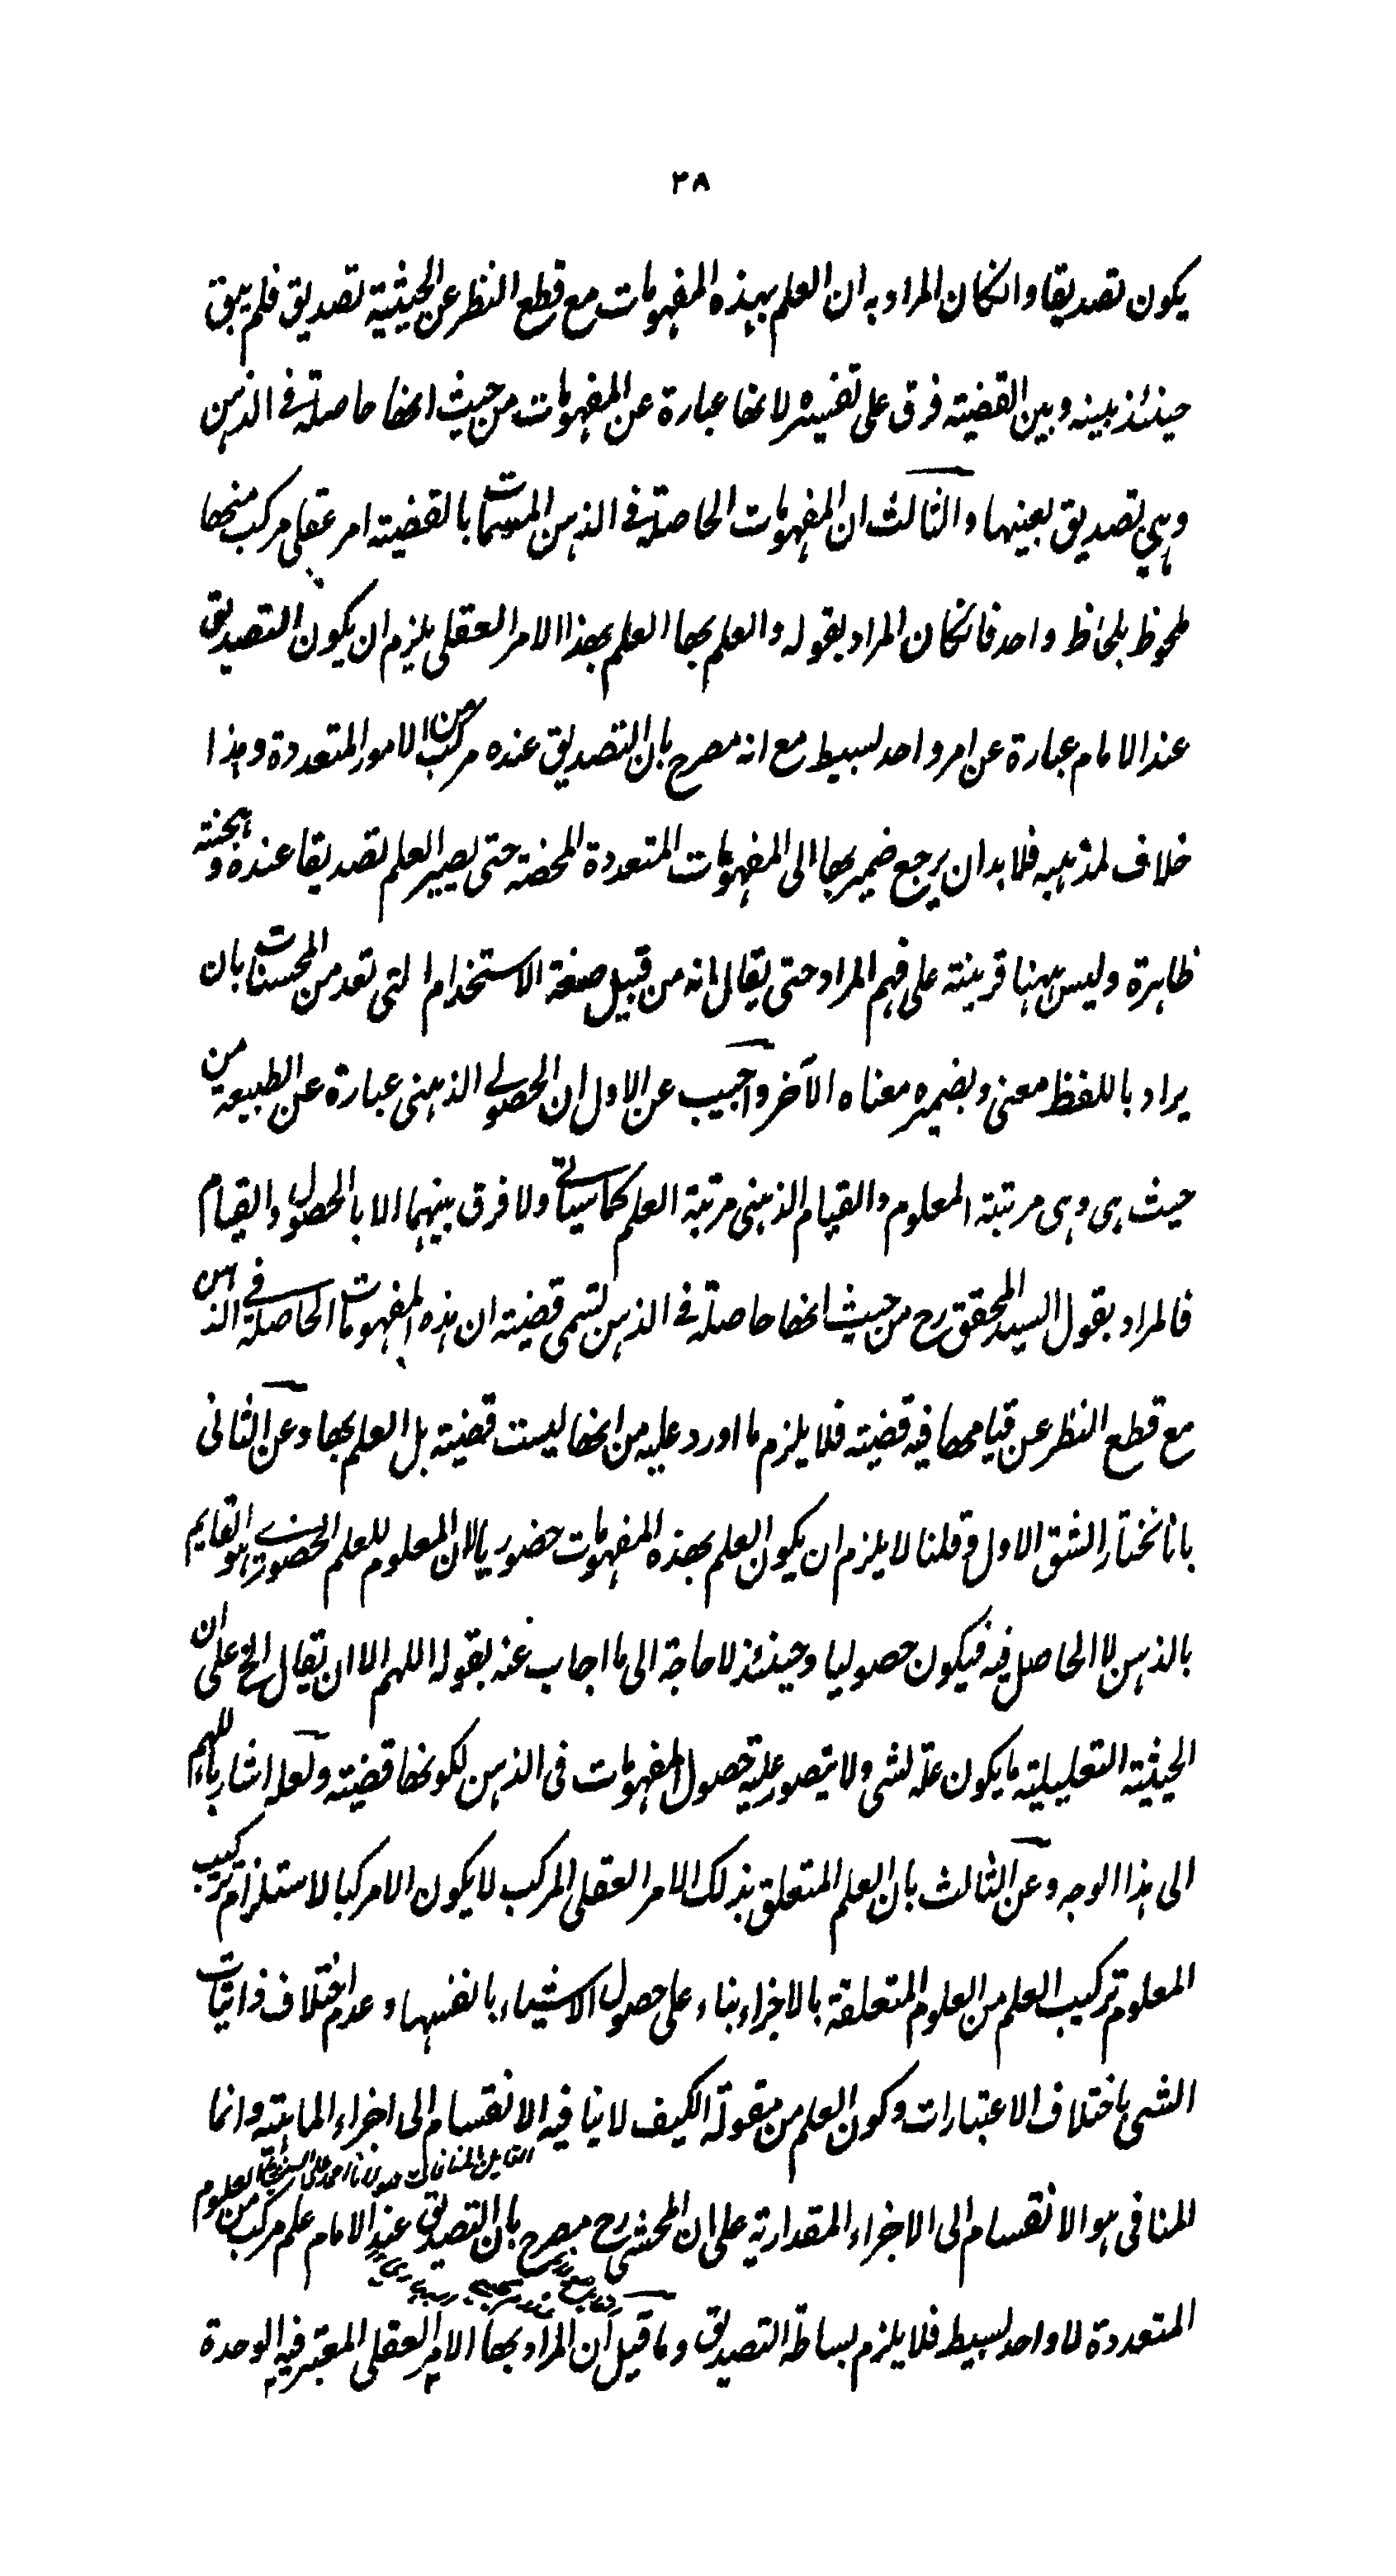 ٣٨
يكون تصديقا وانكان المراد به ان العلم بهذه المفهومات مع قطع النظر عن الحيثية تصديق فلم يبق
حينئذ بينه وبين القضية فرق على تفسيره لانها عبارة عن المفهومات من حيث انها حاصلة في الذهن
وهي تصديق بعينها والثالث ان المفهومات الحاصلة في الذهن المسمات بالقضية امر عقلي مركب منها
ملحوظ بلحاظ واحد فانكان المراد بقوله والعلم بها العلم بهذا الامر العقلي يلزم ان يكون التصديق
عند الامام عبارة عن امر واحد بسيط مع انه مصرح بان التصديق عنده مركب من الامور المتعددة وهذا
خلاف لمذهبه فلا بد ان يرجع ضمير بها الى المفهومات المتعددة المحضة حتى يصير العلم تصديقا عنده وهجنته
ظاهرة وليس ههنا قرينة على فهم المراد حتى يقال انه من قبيل صنعة الاستخدام التي تعد من المحسنات بان
يراد باللفظ معنى وبضميره معناه الآخر واجيب عن الاول ان الحصول الذهني عبارة عن الطبيعة من
حيث هي وهي مرتبة المعلوم والقيام الذهني مرتبة العلم كما سياتي ولا فرق بينهما الا بالحصول والقيام
فالمراد بقول السيد المحقق رح من حيث انها حاصلة في الذهن تسمى قضية ان هذه المفهومات الحاصلة في الذهن
مع قطع النظر عن قيامها فيه قضية فلا يلزم ما اورد عليه من انها ليست قضية بل العلم بها وعن الثاني
بانا نختار الشق الاول وقلنا لا يلزم ان يكون العلم بهذه المفهومات حضوريا لان المعلوم للعلم الحضوري هو القايم
بالذهن لا الحاصل فيه فيكون حصوليا وحينئذ لا حاجة الى ما اجاب عنه بقوله اللهم الا ان يقال الخ على ان
الحيثية التعليلية ما يكون علة لشي ولا يتصور علية حصول المفهومات في الذهن لكونها قضية ولعله اشار باللهم
الى هذا الوجه وعن الثالث بان العلم المتعلق بذلك الامر العقلي المركب لا يكون الا مركبا لاستلزام تركيب
المعلوم تركيب العلم من العلوم المتعلقة بالاجزاء بناء على حصول الاشياء بانفسها وعدم اختلاف ذاتيات
الشي باختلاف الاعتبارات وكون العلم من مقولة الكيف لا ينافيه الانقسام الى اجزاء الماهية وانما
المنافي هو الانقسام الى الاجزاء المقدارية على ان المحشي رح مصرح بان التصديق عند الامام علم مركب من العلوم
المتعددة لا واحد بسيط فلا يلزم بساطة التصديق وما قيل ان المراد بها الامر العقلي المعتبر فيه الوحدة